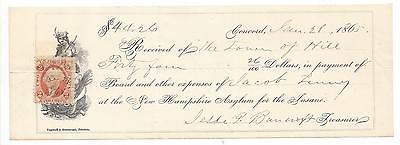 $44.26 Concord, Jan. 21 1865.
Received of the Town of Hill
Forty four 26/100 Dollars, in payment of
Board and other expenses of Jacob
at the New Hampshire Asylum for the Insane.
Jesse P. Bancroft Treasurer